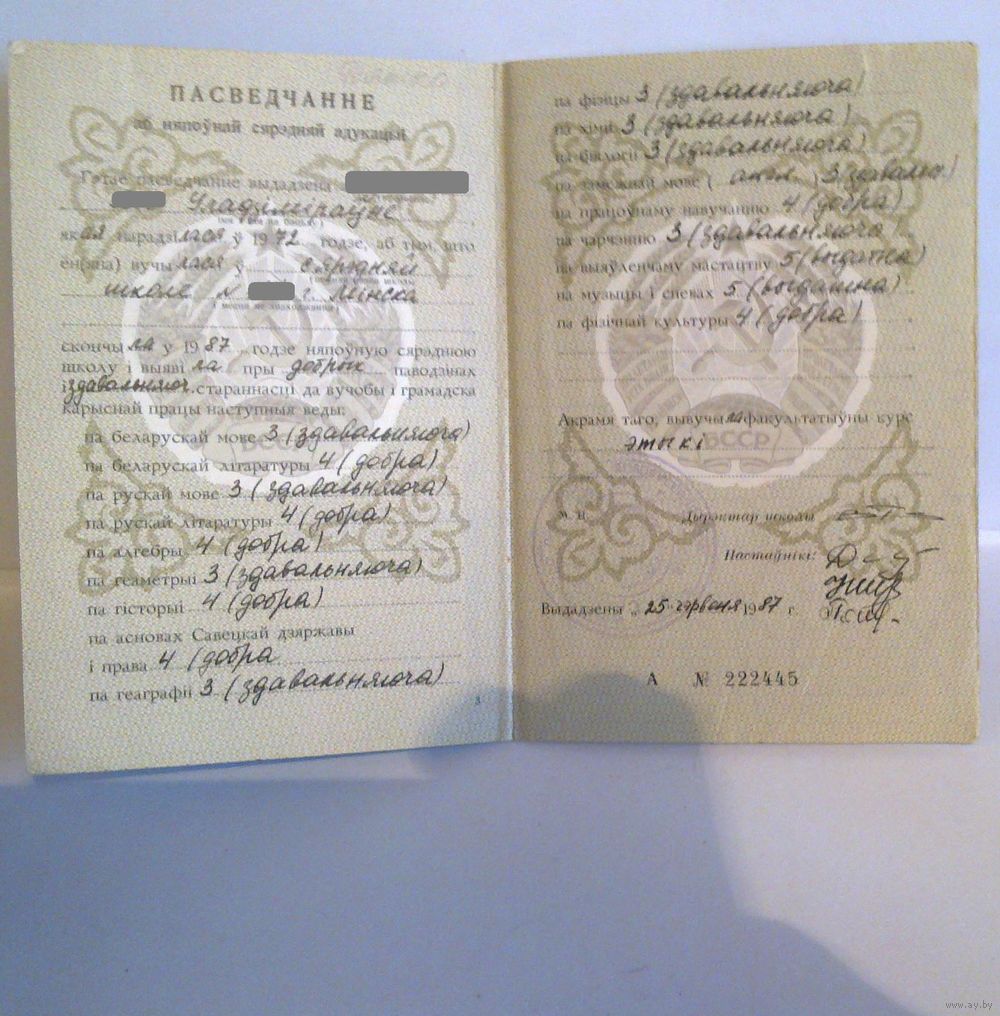 ПАСВЕДЧАННЕ
аб няпоўнай сярэдняй адукацыі
Гэтае пасведчанне выдадзена
Уладзіміраўне
якая нарадзілася ў 1972 годзе, аб тым, што
ён(яна) вучылася ў сярэдняй
школе № г. Мінска
скончыла ў 1987 годзе няпоўную сярэднюю
школу і выявіла пры добрых паводзінах
і здавальняюч. стараннасці да вучобы і грамадска
карыснай працы наступныя веды:
па беларускай мове 3 (здавальняюча)
па беларускай літаратуры 4 (добра)
па рускай мове 3 (здавальняюча)
па рускай літаратуры 4 (добра)
па алгебры 4 (добра)
па геаметрыі 3 (здавальняюча)
па гісторыі 4 (добра)
па асновах Савецкай дзяржавы
і права 4 (добра
па геаграфіі 3 (здавальняюча)
3
па фізіцы 3 (здавальняюча)
па хіміі 3 (здавальняюча)
па біялогіі 3 (здавальняюча)
па замежнай мове ( англ. ) 3 здавальн.)
па працоўнаму навучанню 4 (добра)
па чарчэнню 3 (здавальняюча)
па выяўленчаму мастацтву 5 (выдатна)
па музыцы і спевах 5 (выдатна)
па фізічнай культуры 4 (добра)
Акрамя таго, вывучыла факультатыўны курс
этыкі
БССР
БССР
М. П. Дырэктар школы
Настаўнікі:
Выдадзены „25 чэрвеня 1987 г.
А № 222445
www.ay.by